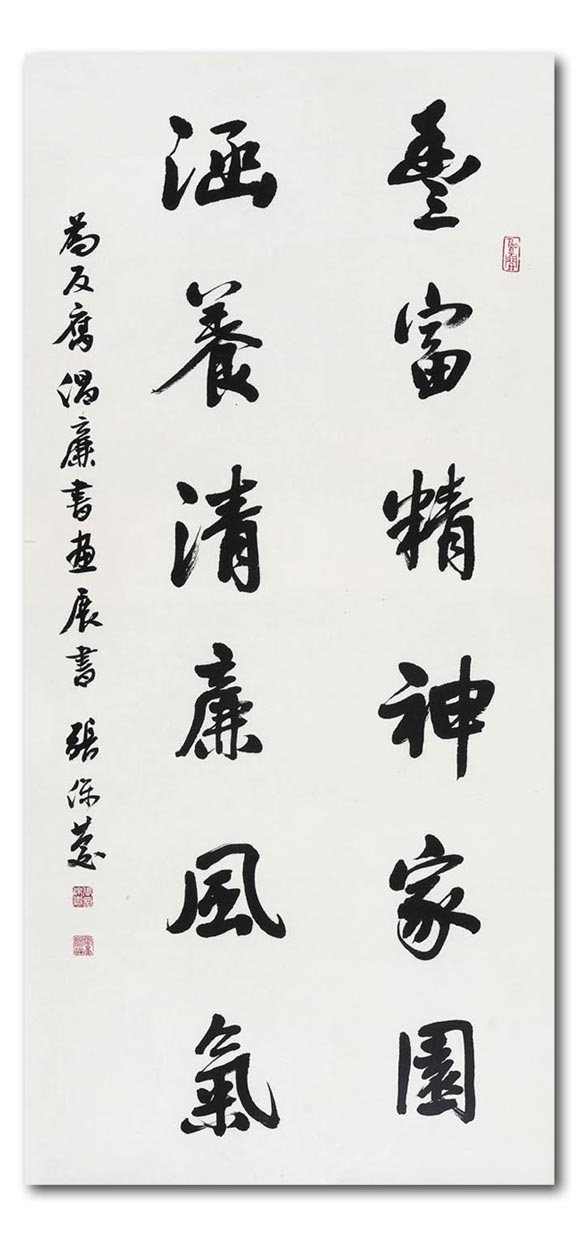 豐富精神家園
涵養清廉風氣
為反腐倡廉書畫展書 張保